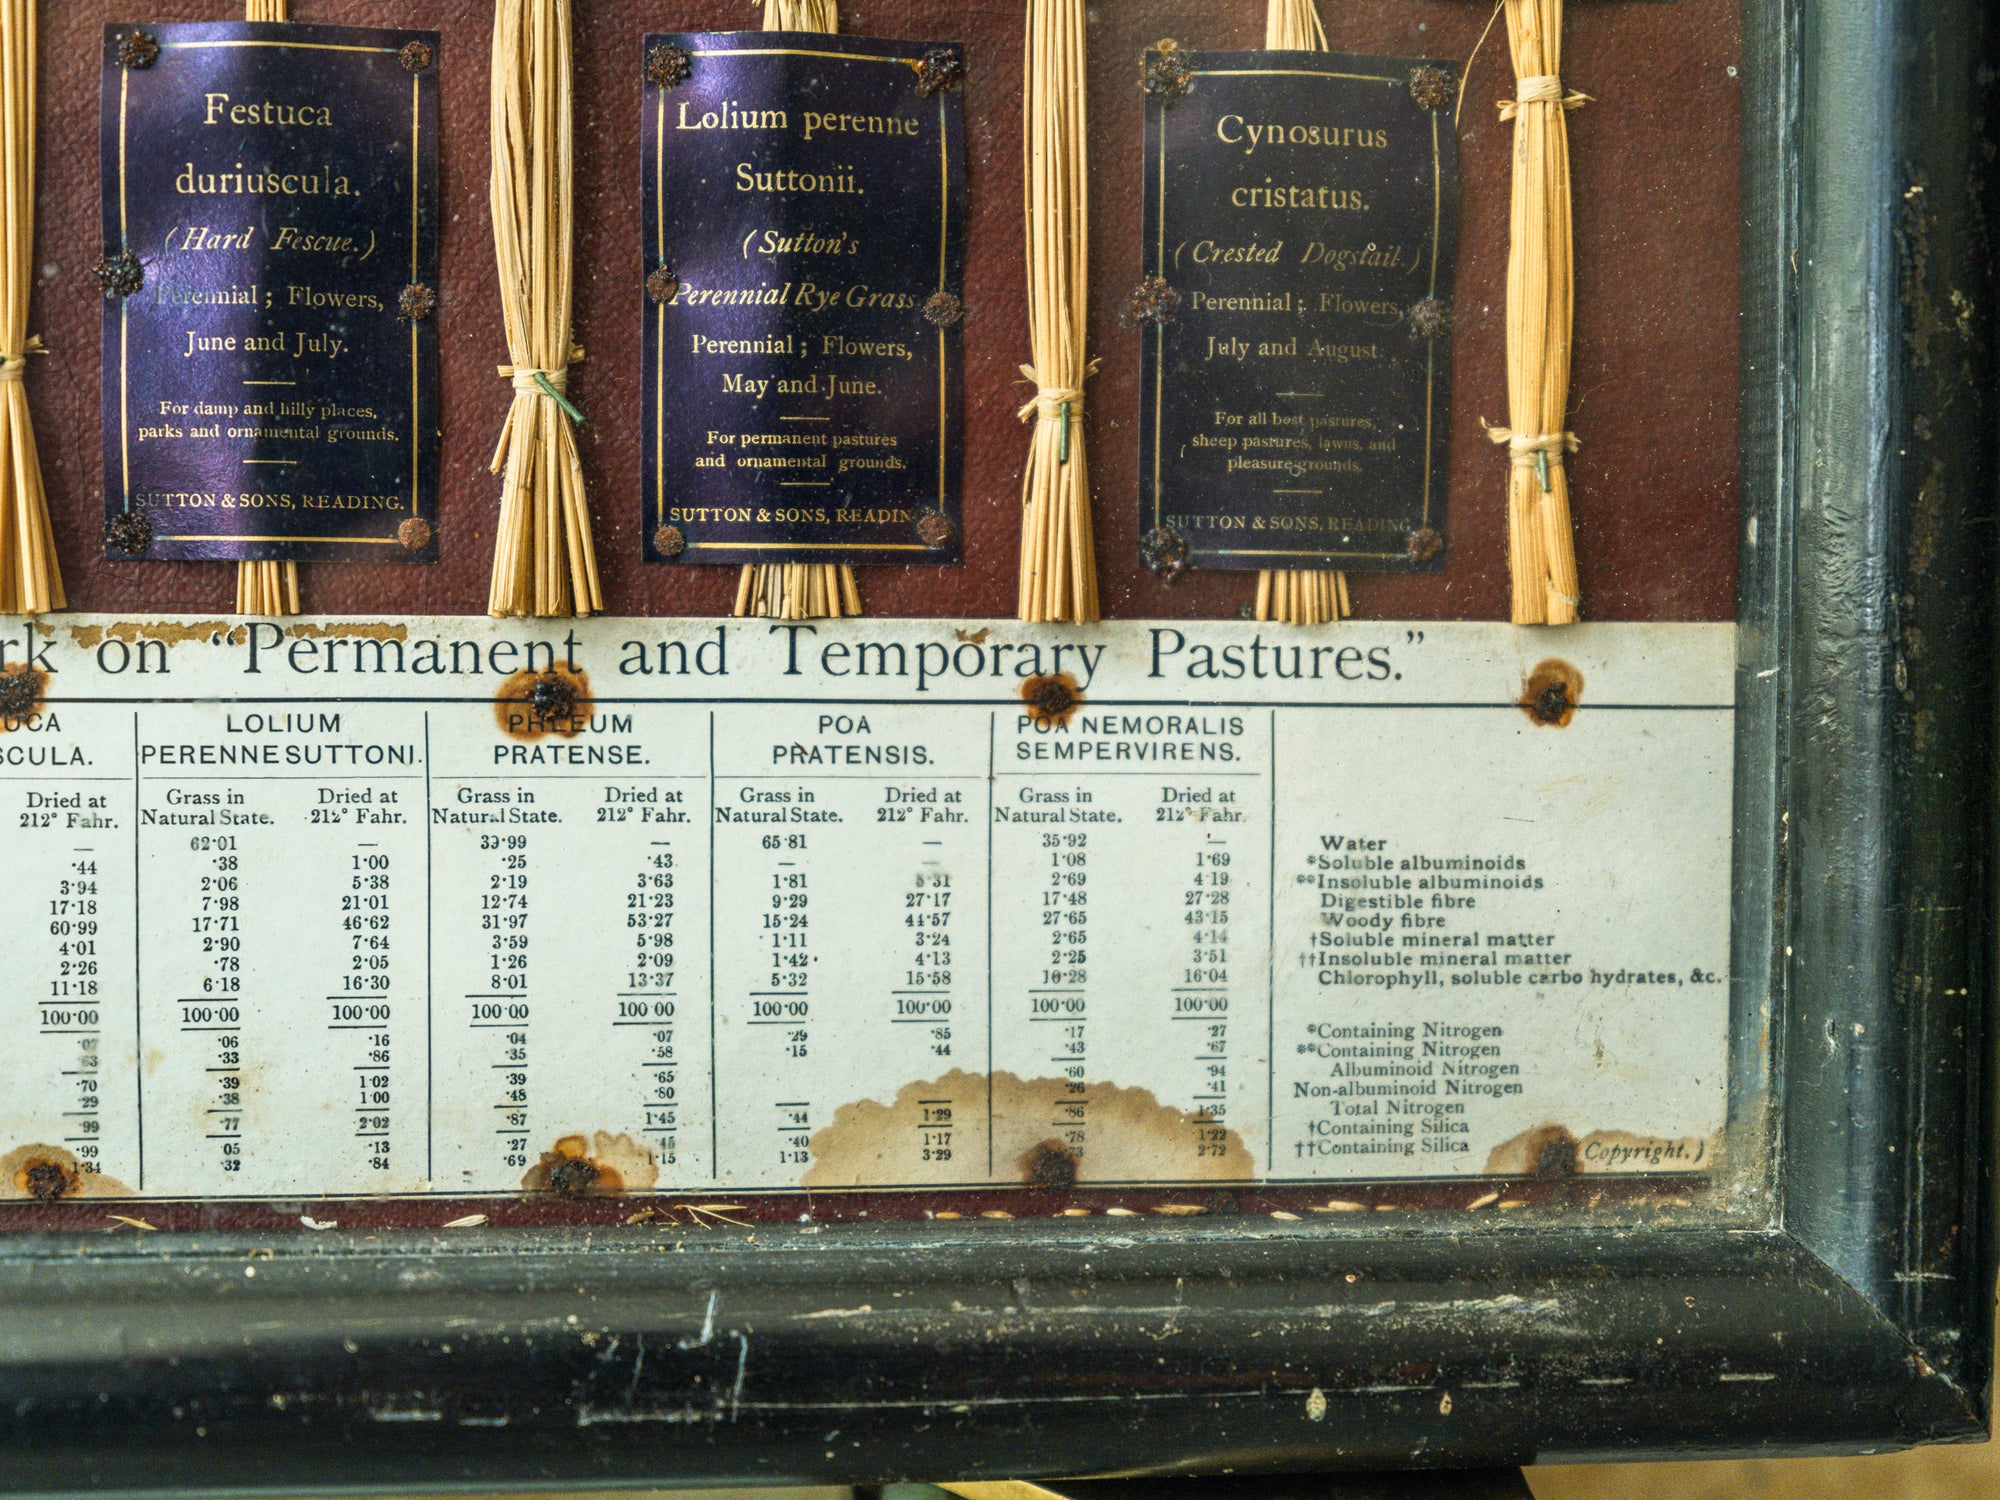 Festuca
duriuscula.
(Hard Fescue.)
Perennial ; Flowers,
June and July.
For damp and hilly places,
parks and ornamental grounds.
SUTTON & SONS, READING.
Lolium perenne
Suttonii.
(Sutton's
Perennial Rye Grass
Perennial ; Flowers,
May and June.
For permanent pastures
and ornamental grounds.
SUTTON & SONS, READIN
Cynosurus
cristatus.
(Crested Dogstail.)
Perennial ; Flowers,
July and August
For all best pastures,
sheep pastures, lawns, and
pleasure grounds.
SUTTON & SONS, READING
rk on “Permanent and Temporary Pastures.”
UCA LOLIUM PHLEUM POA POA NEMORALIS
SCULA. PERENNE SUTTONI. PRATENSE. PRATENSIS. SEMPERVIRENS.
Dried at Grass in Dried at Grass in Dried at Grass in Dried at Grass in Dried at
212° Fahr. Natural State. 212° Fahr. Natural State. 212° Fahr. Natural State. 212° Fahr. Natural State. 212° Fahr.
— 62·01 — 39·99 — 65·81 — 35·92 — Water
·44 ·38 1·00 ·25 ·43 — — 1·08 1·69 *Soluble albuminoids
3·94 2·06 5·38 2·19 3·63 1·81 2·69 4·19 **Insoluble albuminoids
17·18 7·98 21·01 12·74 21·23 9·29 27·17 17·48 27·28 Digestible fibre
60·99 17·71 46·62 31·97 53·27 15·24 44·57 27·65 43·15 Woody fibre
4·01 2·90 7·64 3·59 5·98 1·11 3·24 2·65 4·14 †Soluble mineral matter
2·26 ·78 2·05 1·26 2·09 1·42 4·13 2·25 3·51 ††Insoluble mineral matter
11·18 6·18 16·30 8·01 13·37 5·32 15·58 10·28 16·04 Chlorophyll, soluble carbo hydrates, &c.
100·00 100·00 100·00 100·00 100·00 100·00 100·00 100·00 100·00
·07 ·06 ·16 ·04 ·07 ·29 ·85 ·17 ·27 *Containing Nitrogen
·63 ·33 ·86 ·35 ·58 ·15 ·44 ·43 ·67 **Containing Nitrogen
·70 ·39 1·02 ·39 ·65 ·60 ·94 Albuminoid Nitrogen
·29 ·38 1·00 ·48 ·80 ·26 ·41 Non-albuminoid Nitrogen
·99 ·77 2·02 ·87 1·45 ·44 1·29 ·86 1·35 Total Nitrogen
·99 ·05 ·13 ·27 ·45 ·40 1·17 ·78 1·22 †Containing Silica
1·34 ·32 ·84 ·69 1·15 1·13 3·29 2·72 ††Containing Silica
(Copyright.)